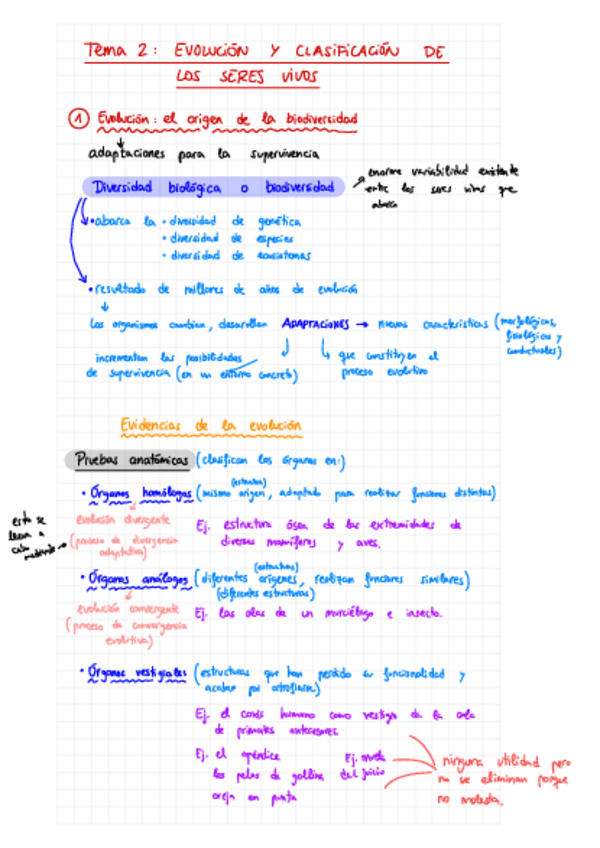 Tema 2: EVOLUCIÓN Y CLASIFICACIÓN DE
LOS SERES VIVOS
① Evolución: el origen de la biodiversidad
adaptaciones para la supervivencia
Diversidad biológica o biodiversidad
enorme variabilidad existente
entre los seres vivos que
abarca
• abarca la • diversidad de genética
• diversidad de especies
• diversidad de ecosistemas
• resultado de millones de años de evolución
Los organismos cambian, desarrollan ADAPTACIONES → nuevas características (morfológicas,
fisiológicas y
conductuales)
incrementan las posibilidades
de supervivencia (en un entorno concreto)
que constituyen el
proceso evolutivo
Evidencias de la evolución
Pruebas anatómicas (clasifican los órganos en:)
• Órganos homólogos (mismo origen, adaptado para realizar funciones distintas)
(estructura)
esto se
lleva a
cabo mediante
evolución divergente
(proceso de divergencia
adaptativa)
Ej. estructura ósea de las extremidades de
diversos mamíferos y aves.
(estructura)
• Órganos análogos (diferentes orígenes, realizan funciones similares)
(diferentes estructuras)
evolución convergente
(proceso de convergencia
evolutiva)
Ej. las alas de un murciélago e insecto.
• Órganos vestigiales (estructuras que han perdido su funcionalidad y
acaban por atrofiarse)
Ej. el coxis humano como vestigio de la cola
de primates antecesores.
Ej. el apéndice
los pelos de gallina
oreja en punta
Ej. muela
del juicio
ninguna utilidad pero
no se eliminan porque
no molesta.